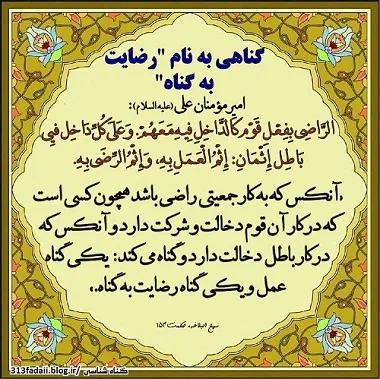 گناهی به نام "رضایت
به گناه"
امیر مؤمنان علی (علیه السلام):
الرَّاضِی بِفِعْلِ قَوْمٍ کَالدَّاخِلِ فِیهِ مَعَهُمْ. وَعَلَی کُلِّ دَاخِلٍ فِی
بَاطِلٍ إِثْمَانِ: إِثْمُ الْعَمَلِ بِهِ، وَإِثْمُ الرِّضَی بِهِ.
«آنکس که به کار جمعیتی راضی باشد همچون کسی است
که در کار آن قوم دخالت و شرکت دارد و آنکس که
در کار باطل دخالت دارد دو گناه می کند: یکی گناه
عمل و یکی گناه رضایت به گناه.»
نهج البلاغه، حکمت ۱۵۴
گناه شناسی /313fadaii.blog.ir